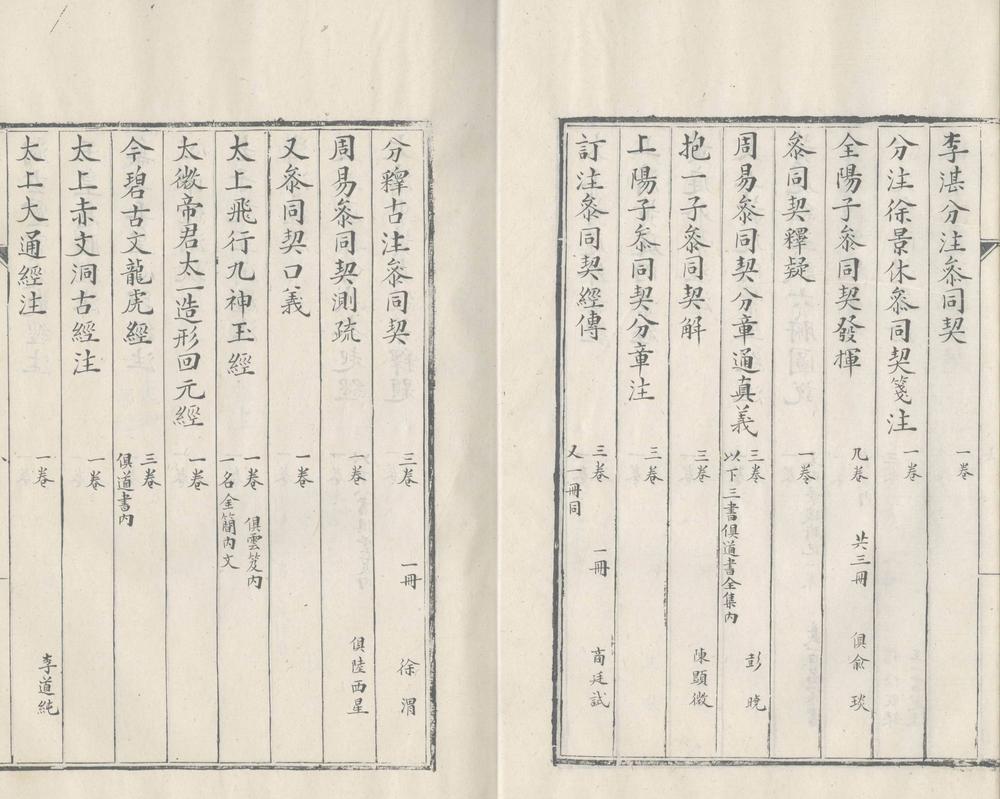 李湛分注叅同契 一卷
分注徐景休叅同契箋注 一卷
全陽子叅同契發揮 九卷 共三冊 俱俞琰
叅同契釋疑 一卷
周易叅同契分章通真義 三卷 以下三書俱道書全集內 彭曉
抱一子叅同契解 三卷 陳顯微
上陽子叅同契分章注 三卷
訂注叅同契經傳 三卷 又一冊同 一冊 商廷試
分釋古注叅同契 三卷 一冊 徐渭
周易叅同契測疏 一卷 俱陸西星
又叅同契口義 一卷
太上飛行九神玉經 一卷 一名金簡內文 俱雲笈內
太微帝君太一造形回元經 一卷
今碧古文龍虎經 三卷 俱道書內
太上赤文洞古經注 一卷
太上大通經注 一卷 李道純